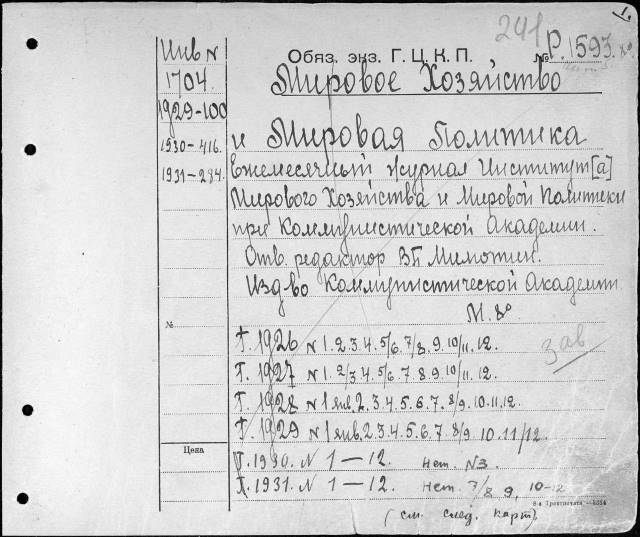 1.
241
Инв N
Обяз. экз. Г. Ц. К. П.
№ Р. 1593.
1704.
Мировое Хозяйство
1929-100
и Мировая Политика
1530-416.
Ежемесячный журнал Институт[а]
1931-284.
Мирового Хозяйства и Мировой Политики
при Коммунистической Академии.
Отв. редактор В П Милютин.
Изд-во Коммунистической Академии.
М. 8°
№
Г. 1926 N 1. 2. 3. 4. 5/6. 7/8. 9. 10/11. 12.
зав
Г. 1927 N 1. 2/3 4. 5/6. 7 8 9 10/11. 12.
Г. 1928 N 1 янв. 2. 3. 4. 5. 6. 7. 8/9. 10. 11. 12.
Г. 1929 N 1 янв. 2. 3. 4. 5. 6. 7. 8/9 10. 11/12.
Цена
Г. 1930. N 1 — 12. нет. N3.
Г. 1931. N 1 — 12. нет 7/8 9, 10-12
(см. след. карт).